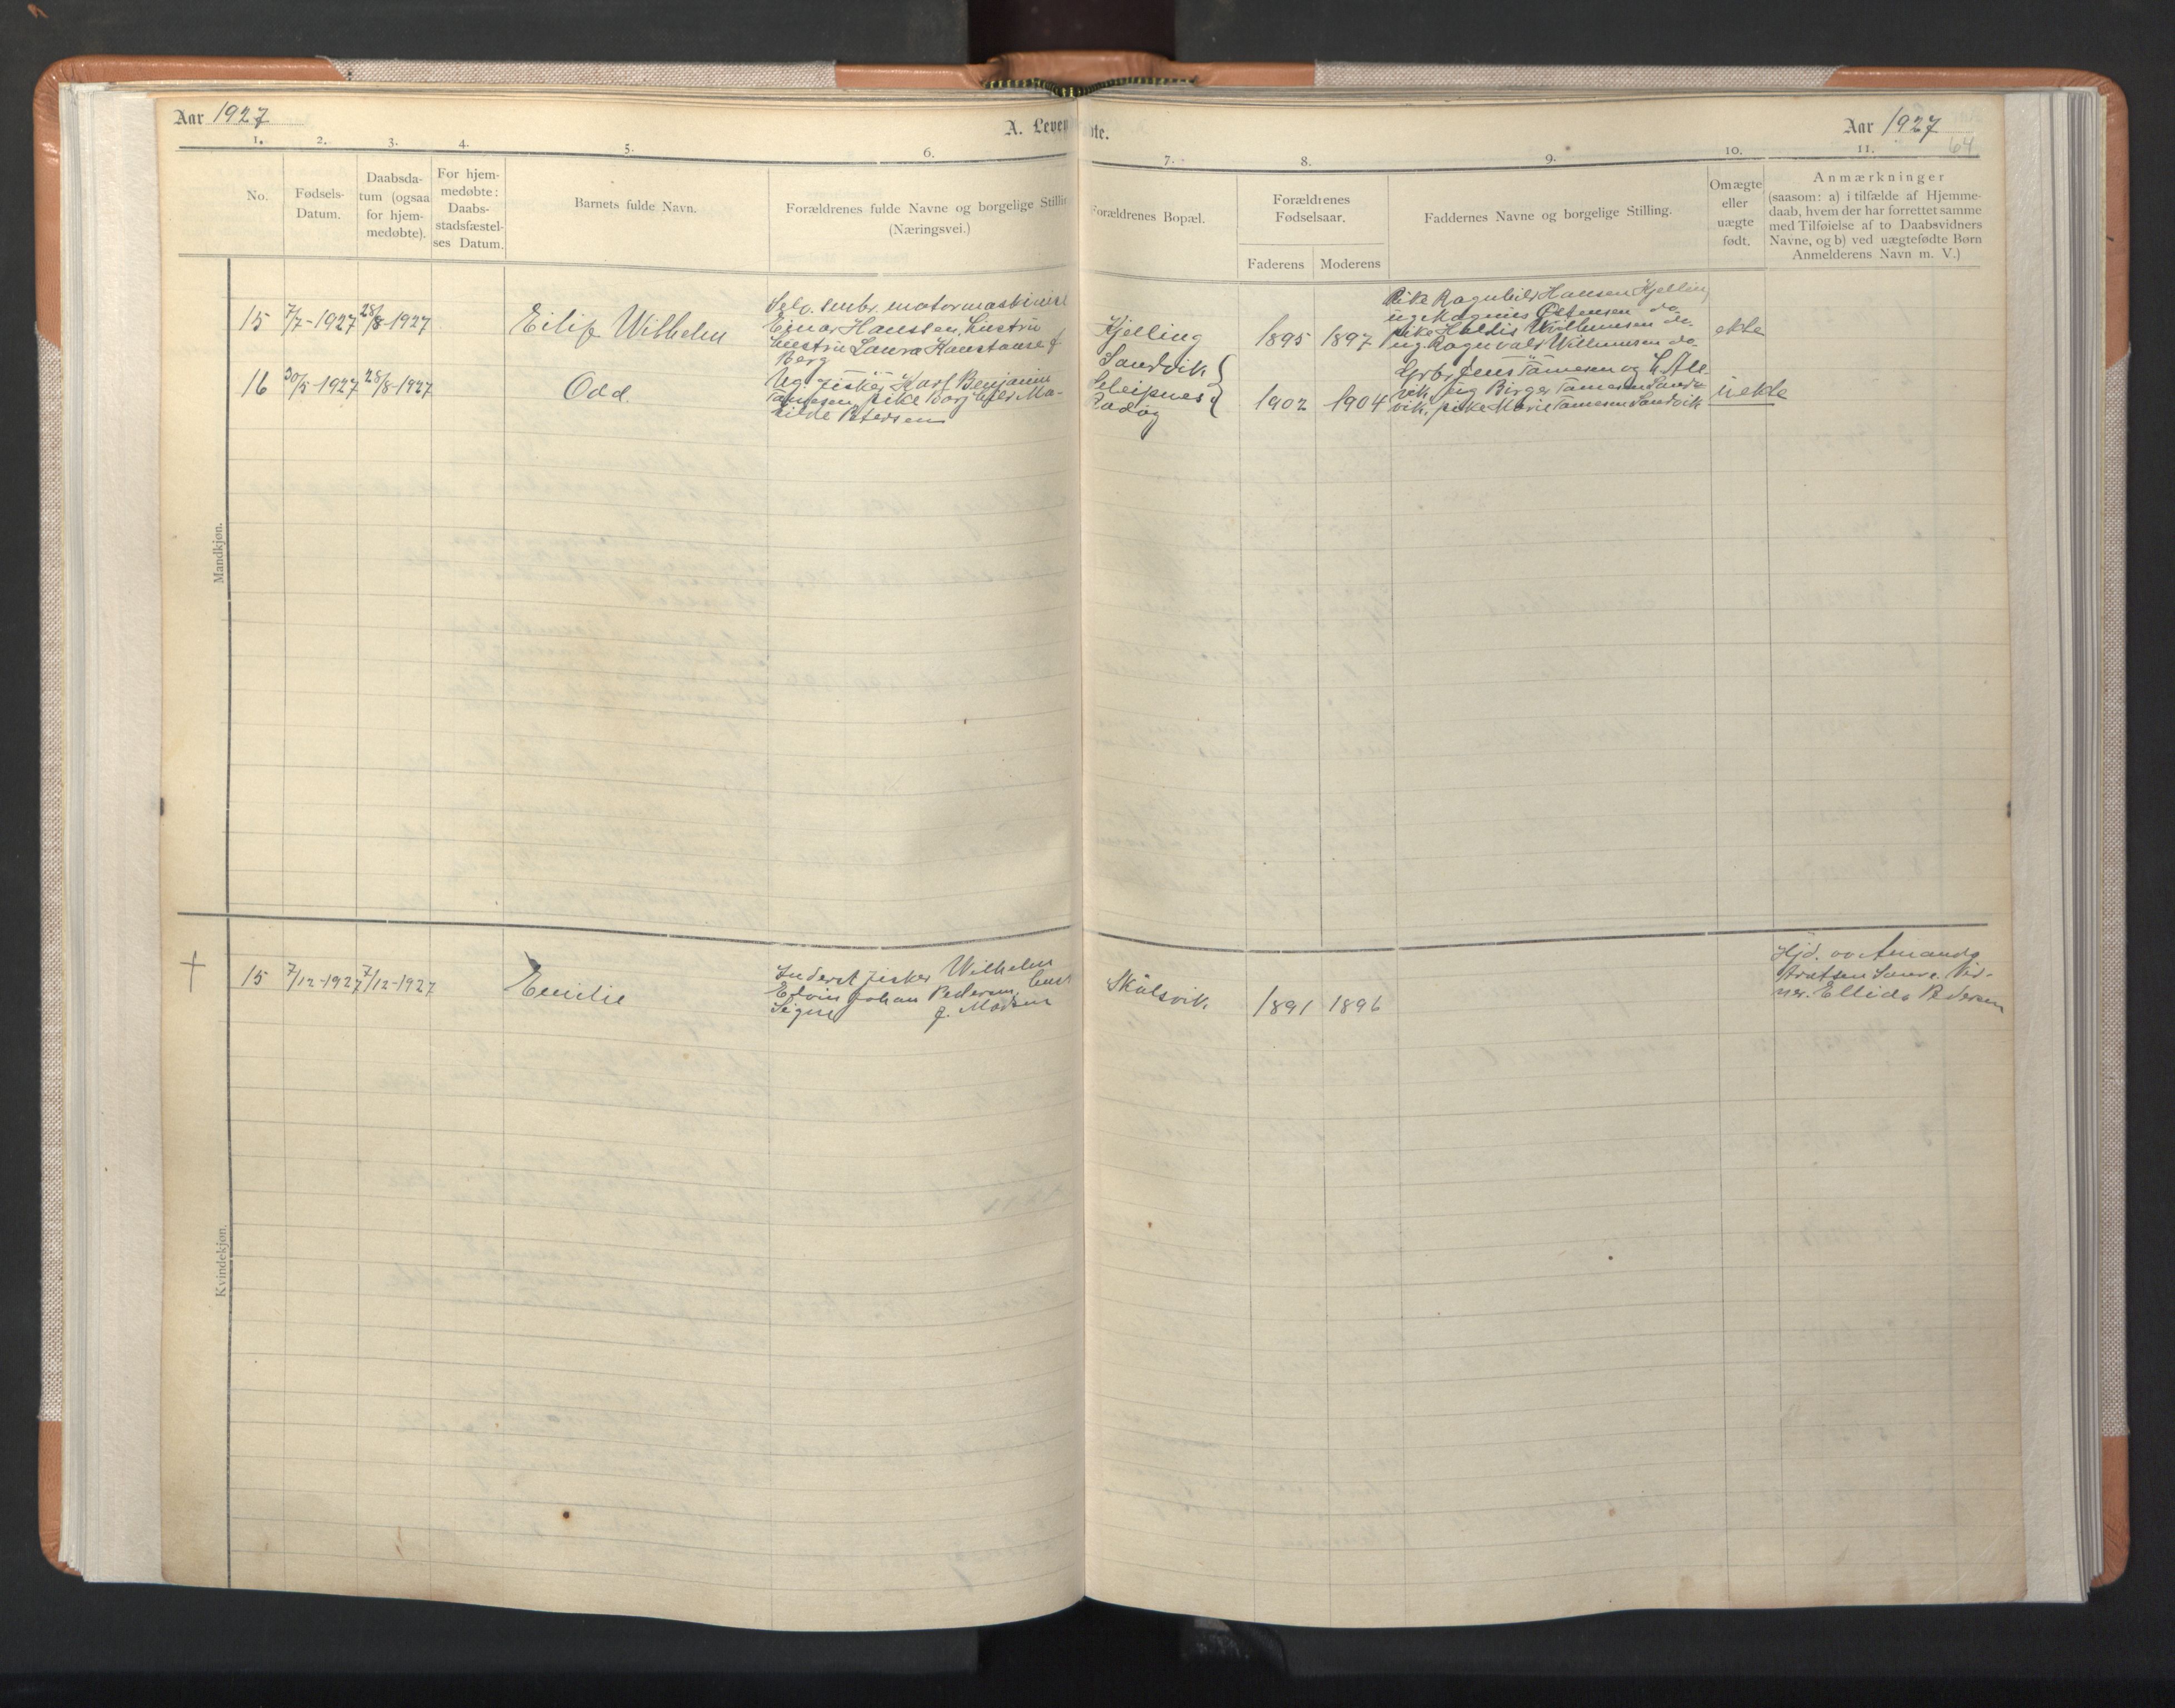 Aar 1927
A. Leven
te.
Aar 1927
64
1. 2. 3. 4. 5. 6. 7. 8. 9. 10. 11.
No.
Fødsels-
Datum.
Daabsda-
tum (ogsaa
for hjem-
medøbte).
For hjem-
medøbte:
Daabs-
stadsfæstel-
ses Datum.
Barnets fulde Navn.
Forældrenes fulde Navne og borgelige Stillin
(Næringsvei.)
Forældrenes Bopæl.
Forældrenes
Fødselsaar.
Faderens Moderens
Faddernes Navne og borgelige Stilling.
Om ægte
eller
uægte
født.
Anmærkninger
(saasom: a) i tilfælde af Hjemme-
daab, hvem der har forrettet samme
med Tilføielse af to Daabsvidners
Navne, og b) ved uægtefødte Børn
Anmelderens Navn m. V.)
Mandkjøn.
15 7/7-1927 28/8-1927
Eilif Wilhelm
Selv. motormaskinist
Einar Hanssen, hustru
hustru Laura Konstanse f
Berg
Kjelling
1895 1897
Pike Ragnhild Hansen Kjelling
ug. Magnus Østensen do.
pike Haldis Willumsen do.
ug. Ragnvald Willumsen do.
ekte
16 30/5-1927 28/8-1927
Odd.
Ug. fisker Karl Benjamin
Tømesen, pike Borghild Ma-
tilde Petersen
Sandvik
Sleipnes
Rødøy
1902 1904
Grbr. Jens Tømesen og h.
vik, ug. Birger Tømesen Sand-
vik, pike Marie Tømesen Sandvik
uekte
Kvindekjøn.
15 7/12-1927 7/12-1927
Emilie
Inderst fisker Wilhelm
Edvin Johan Pedersen, hust
Signe f. Madsen
Skålsvik
1891 1896
Hjd. av Amanda
Vid-
ner. Ellida Pedersen